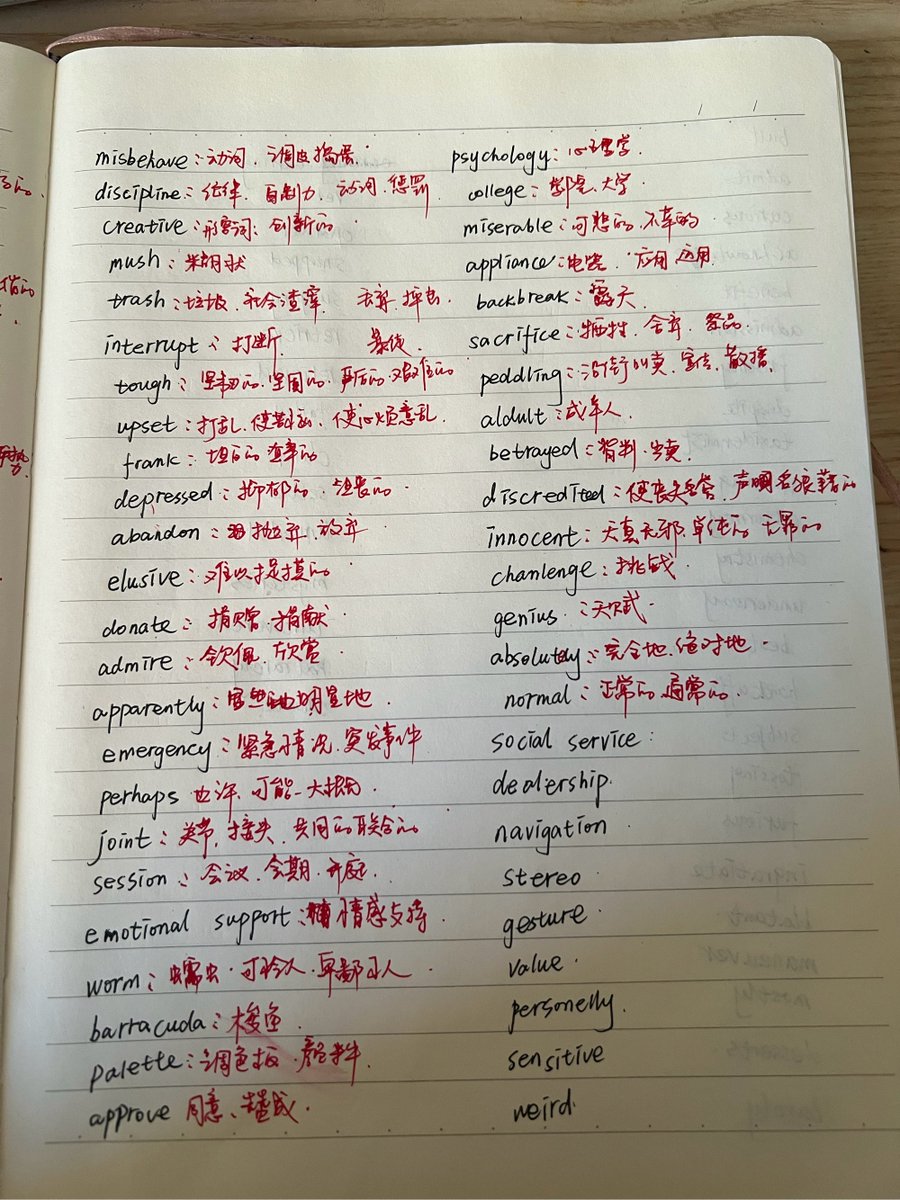 misbehave：动词、调皮捣蛋.
discipline：纪律、自制力、动词、惩罚
creative：形容词：创新的
mush：米胡状
trash：垃圾、社会渣滓、丢弃、摔出.
interrupt：打断
暴续
tough：坚韧的、坚固的、严厉的、艰难的
upset：打乱、使翻、使心烦意乱.
frank：坦白的 直率的
depressed：抑郁的、沮丧的
abandon：抛弃、放弃
elusive：难以捉摸的
donate：捐赠、捐献.
admire：钦佩、欣赏
apparently：显地.
emergency：紧急情况、突发事件
perhaps 也许、可能、大概
joint：关节，接头、共同的联合的
session：会议、会期、开庭.
emotional support：情感支持
worm：蠕虫·可怜人·卑鄙小人.
barracuda：梭鱼
palette：调色板·颜料.
approve 同意、赞成.
psychology：心理学.
college：学院、大学
miserable：可悲的、不幸的
appliance：电器、应用 运用.
backbreak：露天
sacrifice：牺牲、舍弃、祭品
peddling：沿街叫卖、宣传、散播.
aldult：成年人
betrayed：背判、出卖.
discredited：使丧失名誉、声明名狼藉的
innocent：天真无邪、单纯的、无罪的
chanlenge：挑战
genius：天赋.
absolutely：完全地、绝对地.
normal：正常的、通常的.
social service：
dealership.
navigation
stereo
gesture.
value.
personelly.
sensitive
weird.